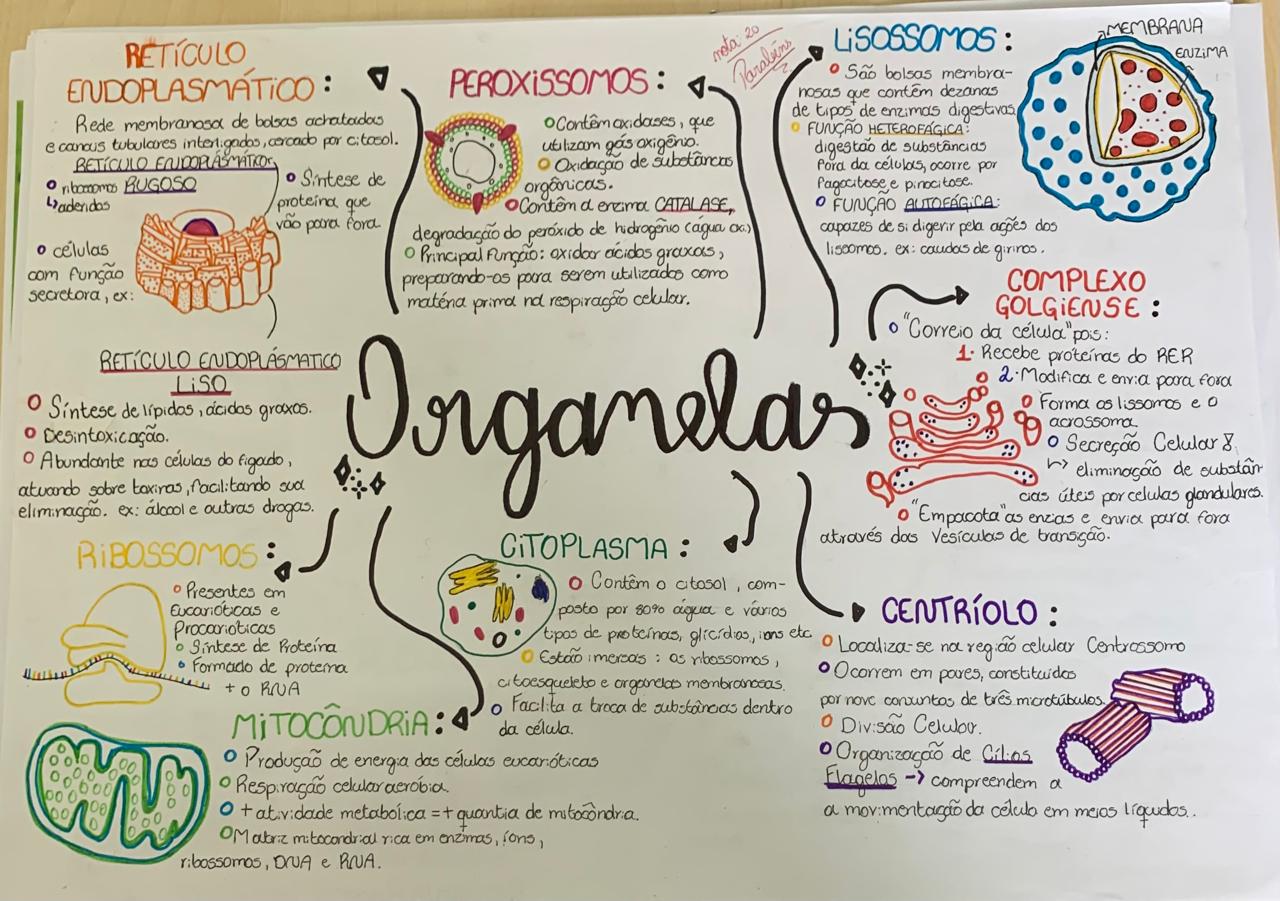 RETÍCULO
ENDOPLASMÁTICO:
Rede membranosa de bolsas achatadas
e canais tubulares interligados, cercado por citosol.
RETÍCULO ENDOPLÁSMÁTICO
RUGOSO
ribossomos
↳ aderidos
Síntese de
proteína que
vão para fora
células
com função
secretora, ex:
RETÍCULO ENDOPLÁSMATICO
LISO
Síntese de lípidos, ácidos graxos.
Desintoxicação.
Abundante nas células do fígado,
atuando sobre toxinas, facilitando sua
eliminação. ex: álcool e outras drogas.
PEROXISSOMOS:
Contêm oxidases, que
utilizam gás oxigênio.
Oxidação de substâncias
orgânicas.
Contêm a enzima CATALASE,
degradação do peróxido de hidrogênio (água ox.)
Principal função: oxidar ácidos graxos,
preparando-os para serem utilizados como
matéria prima na respiração celular.
nota: 20
Parabéns
LISOSSOMOS:
São bolsas membra-
nosas que contêm dezenas
de tipos de enzimas digestivas
FUNÇÃO HETEROFÁGICA:
digestão de substâncias
fora da células, ocorre por
fagocitose e pinocitose.
FUNÇÃO AUTOFÁGICA:
capazes de si digerir pela ações dos
lissomos. ex: caudas de girinos.
MEMBRANA
ENZIMA
Organelas
COMPLEXO
GOLGIENSE:
"Correio da célula" pois:
1. Recebe proteínas do RER
2. Modifica e envia para fora
Forma os lissomos e o
acrossoma
Secreção Celular
↳ eliminação de substân
cias úteis por celulas glandulares.
"Empacota" as enzias e envia para fora
através dos vesículas de transição.
RIBOSSOMOS:
Presentes em
Eucarióticas e
Procarioticas
Síntese de Proteína
Formado de proteína
+ o RNA
CITOPLASMA:
Contêm o citosol, com-
posto por 80% água e vários
tipos de proteínas, glicídios, íons etc
Estão imersas: os ribossomos,
citoesqueleto e organelas membranosas.
Facilita a troca de substâncias dentro
da célula.
CENTRÍOLO:
Localiza-se na região celular Centrossomo
Ocorrem em pares, constituídos
por nove conjuntos de três microtúbulos.
Divisão Celular.
Organização de Cílios
Flagelos → compreendem a
a movimentação da célula em meios líquidos..
MITOCÔNDRIA:
Produção de energia das células eucarióticas
Respiração celular aeróbia.
+ atividade metabolíca = + quantia de mitocôndria.
Matriz mitocondrial rica em enzimas, íons,
ribossomos, DNA e RNA.